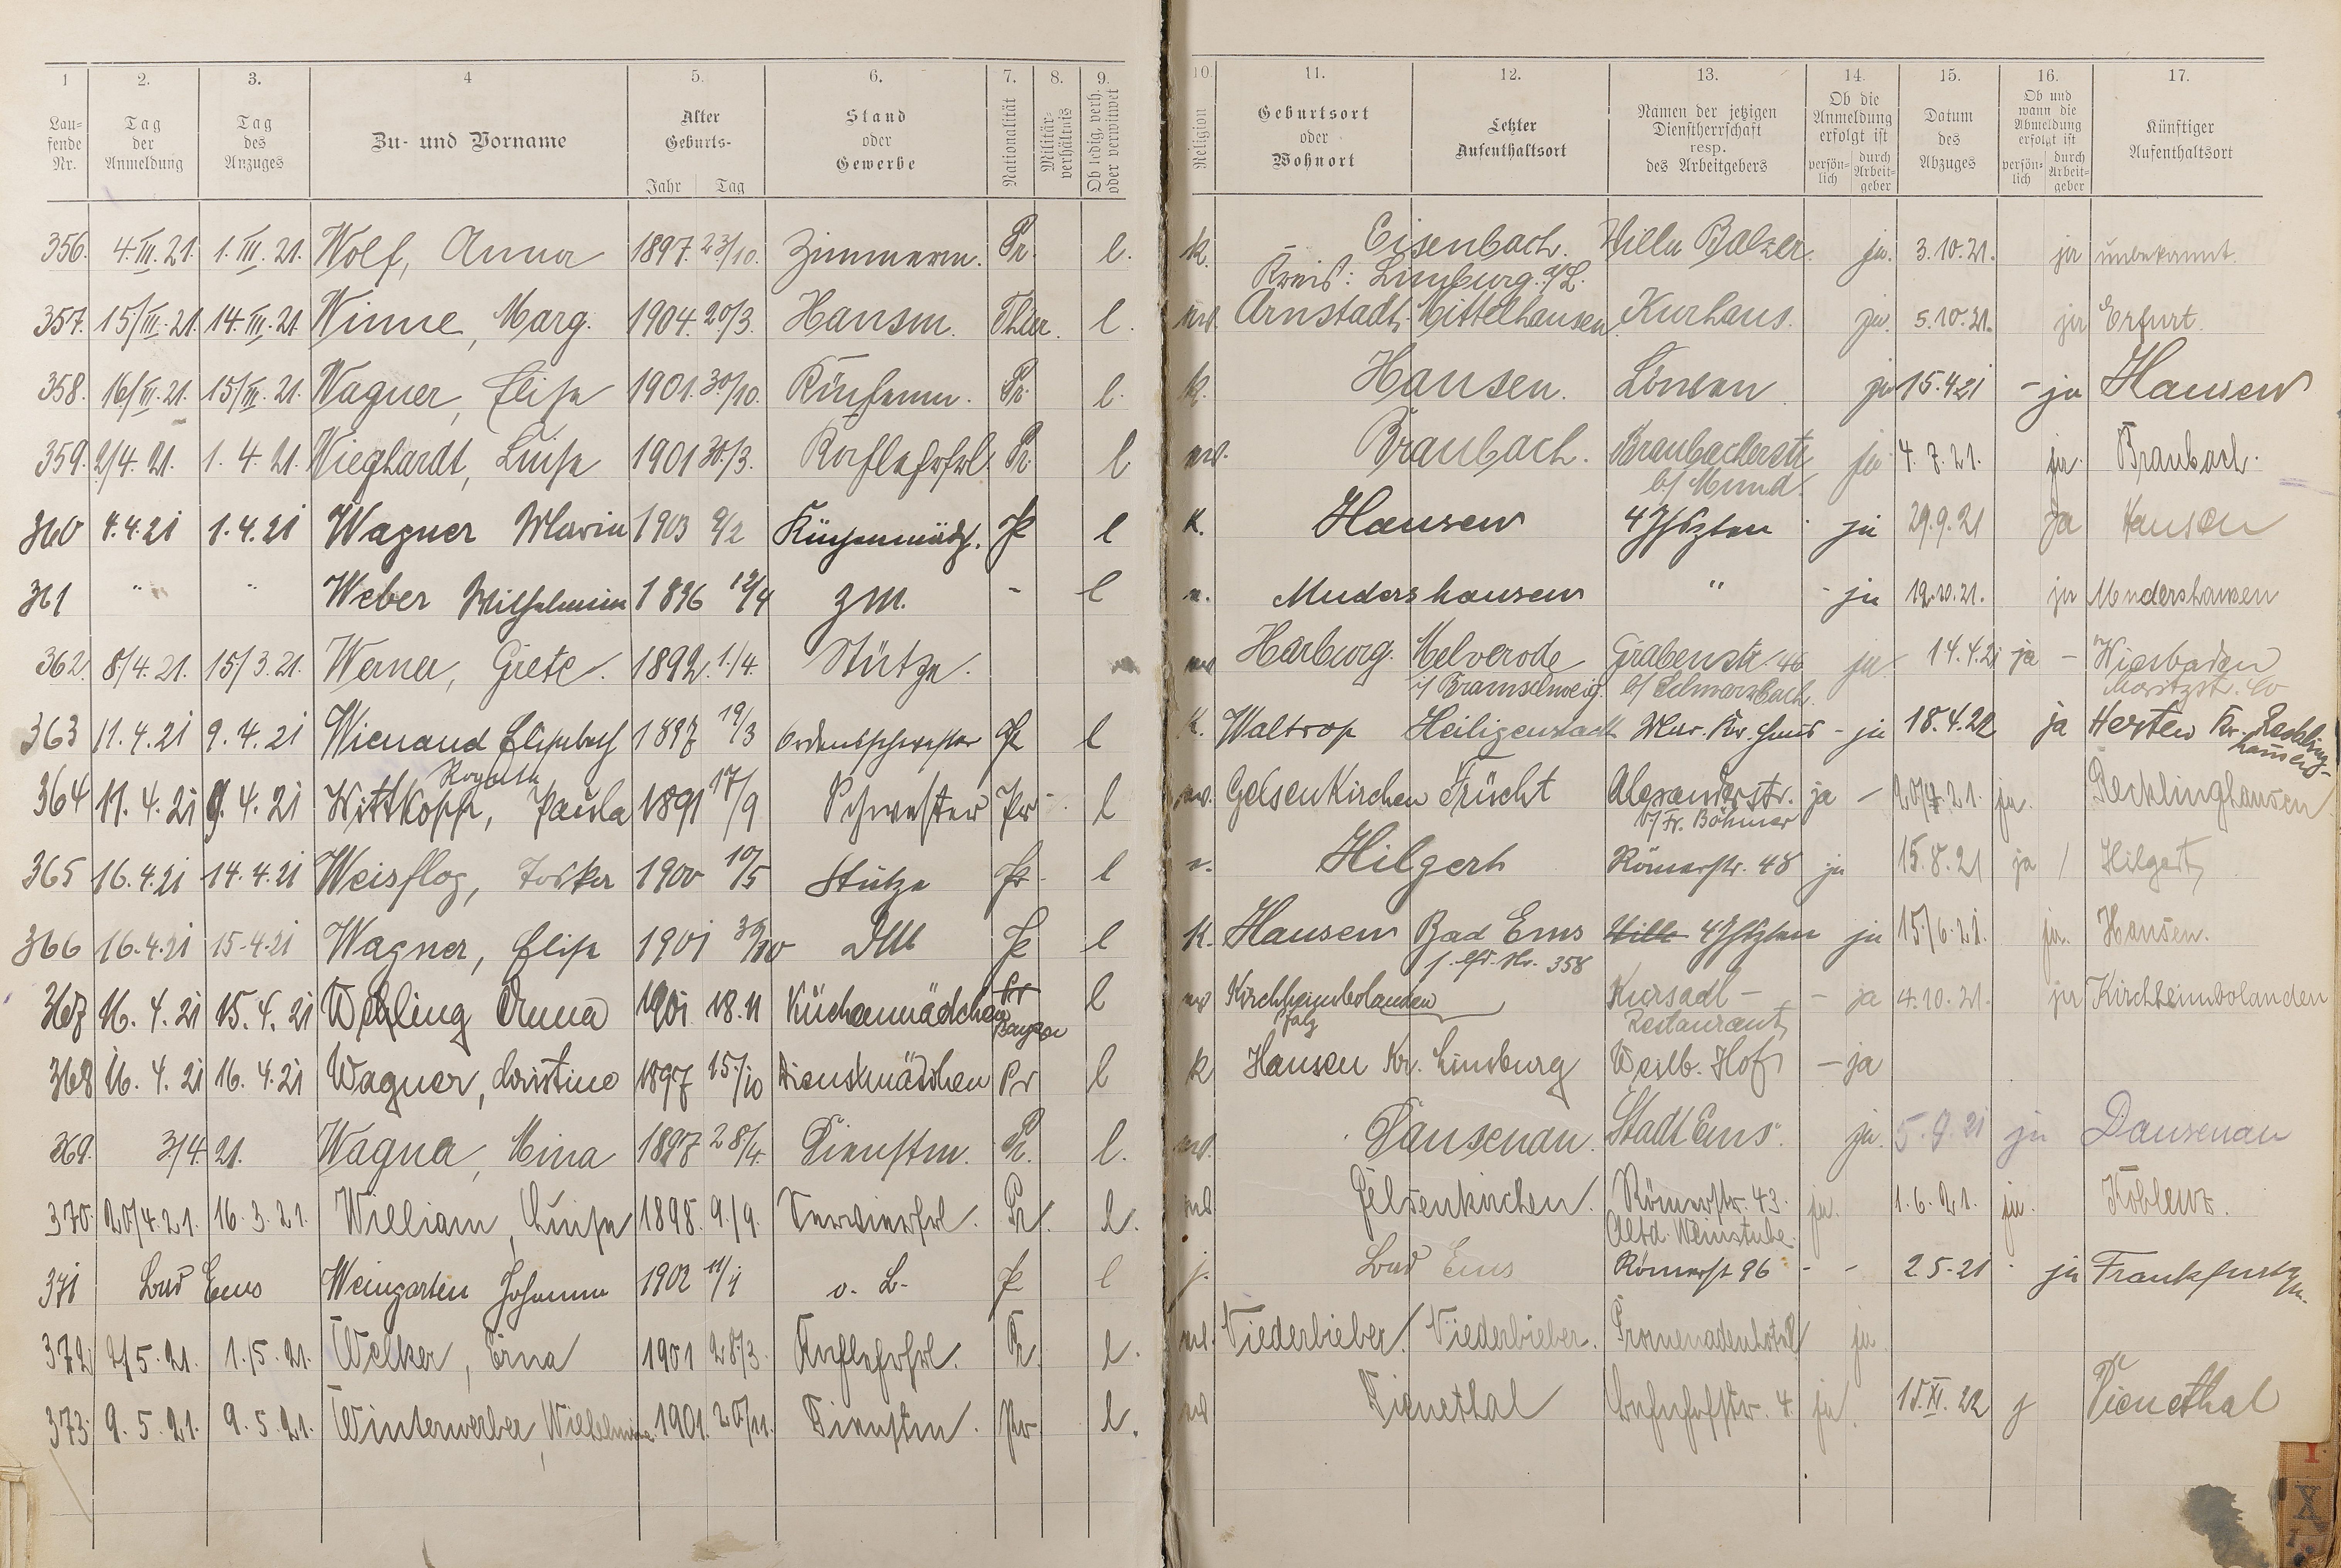 1 2. 3. 4 5. 6. 7. 8. 9. 10. 11. 12. 13. 14. 15. 16. 17.
Lau-
fende
Nr.
Tag
der
Anmeldung
Tag
des
Anzuges
Zu- und Vorname
Alter
Geburts-
Jahr Tag
Stand
oder
Gewerbe
Nationalität
Militär-
verhältnis
Ob ledig, verh.
oder verwitwet
Religion
Geburtsort
oder
Wohnort
Letzter
Aufenthaltsort
Namen der jetzigen
Dienstherrschaft
resp.
des Arbeitgebers
Ob die
Anmeldung
erfolgt ist
persön-
lich
durch
Arbeit-
geber
Datum
des
Abzuges
Ob und
wann die
Abmeldung
erfolgt ist
persön-
lich
durch
Arbeit-
geber
Künftiger
Aufenthaltsort
356. 4.III.21. 1.III.21. Wolf, Anna 1897. 23/10. Zimmerm. Pr. l. k. Eisenbach. Villa Balzer. ja. 3.10.21. ja unbekannt.
Kreis: Limburg a/L.
357. 15/III.21. 14.III.21. Winne, Marg. 1904. 20/3. Hausm. Thür. l. ev. Arnstadt. Mittelhausen Kurhaus. ja. 5.10.21. ja Erfurt.
358. 16/III.21. 15/III.21. Wagner, Elise 1901. 30/10. Pr. l. k. Hausen. Löwen ja 15.4.21 - ja Hausen
359. 2/4.21. 1.4.21. Wieghardt, Luise 1901 30./3. Pr. l ev. Braubach. Braubacherstr. ja 4.7.21. ja. Braubach.
b/ Mund.
360 4.4.21 1.4.21 Wagner Maria 1903 9/2 Küchenmädch. Pr l K. Hausen 4 Jhrzten ja 29.9.21 ja Hausen
361 " " Weber Wilhelmine 1896 12/4 ZM. - l e. Mudershausen " - ja 12.10.21. ja Mudershausen
362. 8/4.21. 15/3.21. Werner, Grete. 1892. 1./4. Stütze. ev Harburg. Melverode Grabenstr. 46 ja. 14.4.21 ja - Wiesbaden
i/ Braunschweig. b/ Schwarzbach. Moritzstr.
363 11.4.21 9.4.21 Wienand Elisabeth 1897 19/3 Ordensschwester Pr l K. Waltrop Heiligenstadt Mar. Kr. Haus - ja 18.4.22 ja Herten Kr. Reckling-
hausen
364 11.4.21 9.4.21 Wittkopp, Paula 1891 17/9 Schwester Pr - l ev. Gelsenkirchen Frücht Alexanderstr. ja - 20/7.21. ja. Recklinghausen
b/ Fr. Böhmer
365 16.4.21 14.4.21 Weisflog, 1900 10/5 Stütze Pr. l e. Hilgert Römerstr. 48 ja 15.8.21 ja / Hilgert
366 16.4.21 15.4.21 Wagner, Elise 1901 30/10 Pr l K. Hausen Bad Ems 4 Jhrzten ja 15/6.21. ja. Hausen.
s. lfd. Nr. 358
367 16.4.21 15.4.21 Anna 1901 18.11 Küchenmädchen Pr l ev Kirchheimbolanden Kursaal - - ja 4.10.21. ja Kirchheimbolanden
Bayern Pfalz Restaurant
368 16.4.21 16.4.21 Wagner, Christine 1897 15./10 Dienstmädchen Pr l k Hausen Kr. Limburg Weilb. Hof - ja
369. 3/4.21. Wagner, Mina 1897 28/4. Dienstm. Pr. l. ev. Dausenau. Stadt Ems. ja. 5.9.21 ja Dausenau
370. 20/4.21. 16.3.21. William, Luise 1898. 9./9. Servierfrl. Pr. l. ev. Gelsenkirchen. Römerstr. 43. ja. 1.6.21. ja. Koblenz.
Altd. Weinstube.
371 Bad Ems Weingarten Johanna 1902 11/1 o. B. Pr l j. Bad Ems Römerst 96 - - 2.5.21 - ja Frankfurt a/m.
372. 2/5.21. 1./5.21. Welker, Erna 1901 28./3. Pr. l. ev. Niederbieber. Niederbieber. Promenadenhotel ja
373. 9.5.21. 9.5.21. Winterwerber, Wilhelmine 1901. 20./11. Dienstm. Pr l. ev Dienethal Bahnhofstr. 4. ja. 15.XI.22 j Dienethal